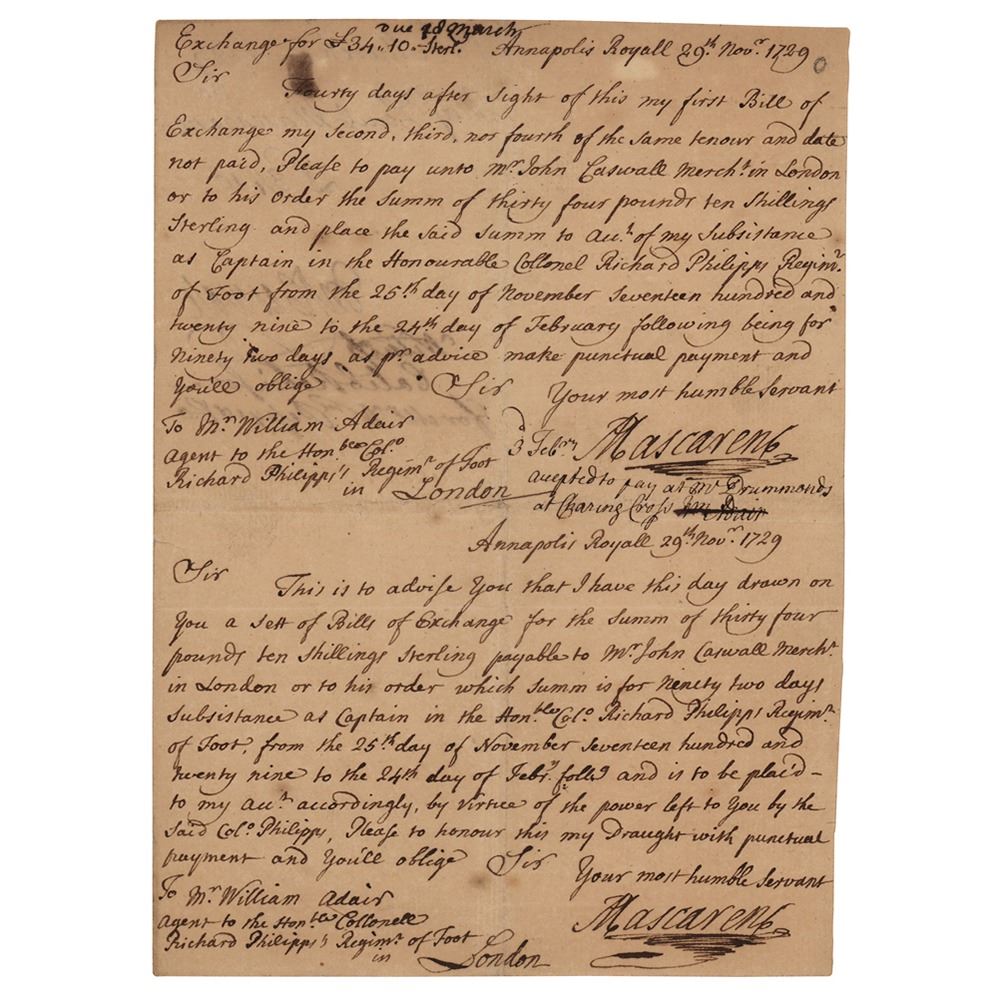 due 18 March
Exchange for £34..10.. Sterl. Annapolis Royall 29th. Novr. 1729
Sir
Fourty days after sight of this my first Bill of
Exchange my second, third, nor fourth of the same tenour and date
not paid, Please to pay unto Mr. John Caswall Mercht. in London
or to his order the Summ of thirty four pounds ten shillings
Sterling and place the said Summ to Acct. of my Subsistance
as Captain in the Honourable Collonel Richard Philipps Regimt.
of Foot from the 25th day of November Seventeen hundred and
twenty nine to the 24th day of February following being for
Ninety two days as pr. advice make punctual payment and
You'll oblige Sir Your most humble Servant
To Mr. William Adair
agent to the Honble Colo.
Richard Philipps's Regimt. of Foot
in London
3 Febry
Mascarene
accepted to pay at Mr Drummonds
at Charing Cross Wm Adair
Annapolis Royall 29th. Novr. 1729
Sir
This is to advise You that I have this day drawn on
You a sett of Bills of Exchange for the Summ of thirty four
pounds ten shillings Sterling payable to Mr. John Caswall Mercht.
in London or to his order which Summ is for Ninety two days
Subsistance as Captain in the Honble Colo. Richard Philipps Regimt.
of Foot, from the 25th day of November Seventeen hundred and
twenty nine to the 24th day of Febry. follg and is to be plac'd -
to my acct. accordingly, by virtue of the power left to You by the
said Colo. Philipps, Please to honour this my Draught with punctual
payment and You'll oblige Sir Your most humble Servant
To Mr. William Adair
Agent to the Honble Collonell
Richard Philipps's Regimt. of Foot
in London
Mascarene